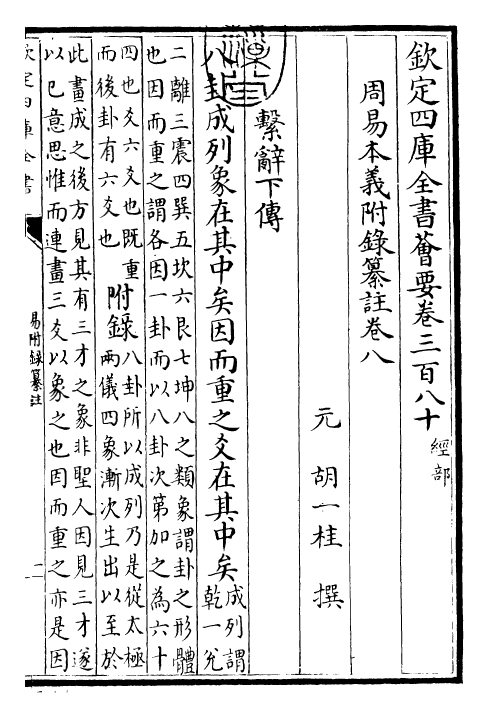 欽定四庫全書薈要卷三百八十
經部
周易本義附錄纂註卷八
元 胡一桂 撰
繫辭下傳
八卦成列象在其中矣因而重之爻在其中矣
成列謂
乾一兌
二離三震四巽五坎六艮七坤八之類象謂卦之形體
也因而重之謂各因一卦而以八卦次第加之為六十
四也爻六爻也既重
而後卦有六爻也
附錄
八卦所以成列乃是從太極
兩儀四象漸次生出以至於
此畫成之後方見其有三才之象非聖人因見三才遂
以已意思惟而連畫三爻以象之也因而重之亦是因
欽定四庫全書
易附錄纂註